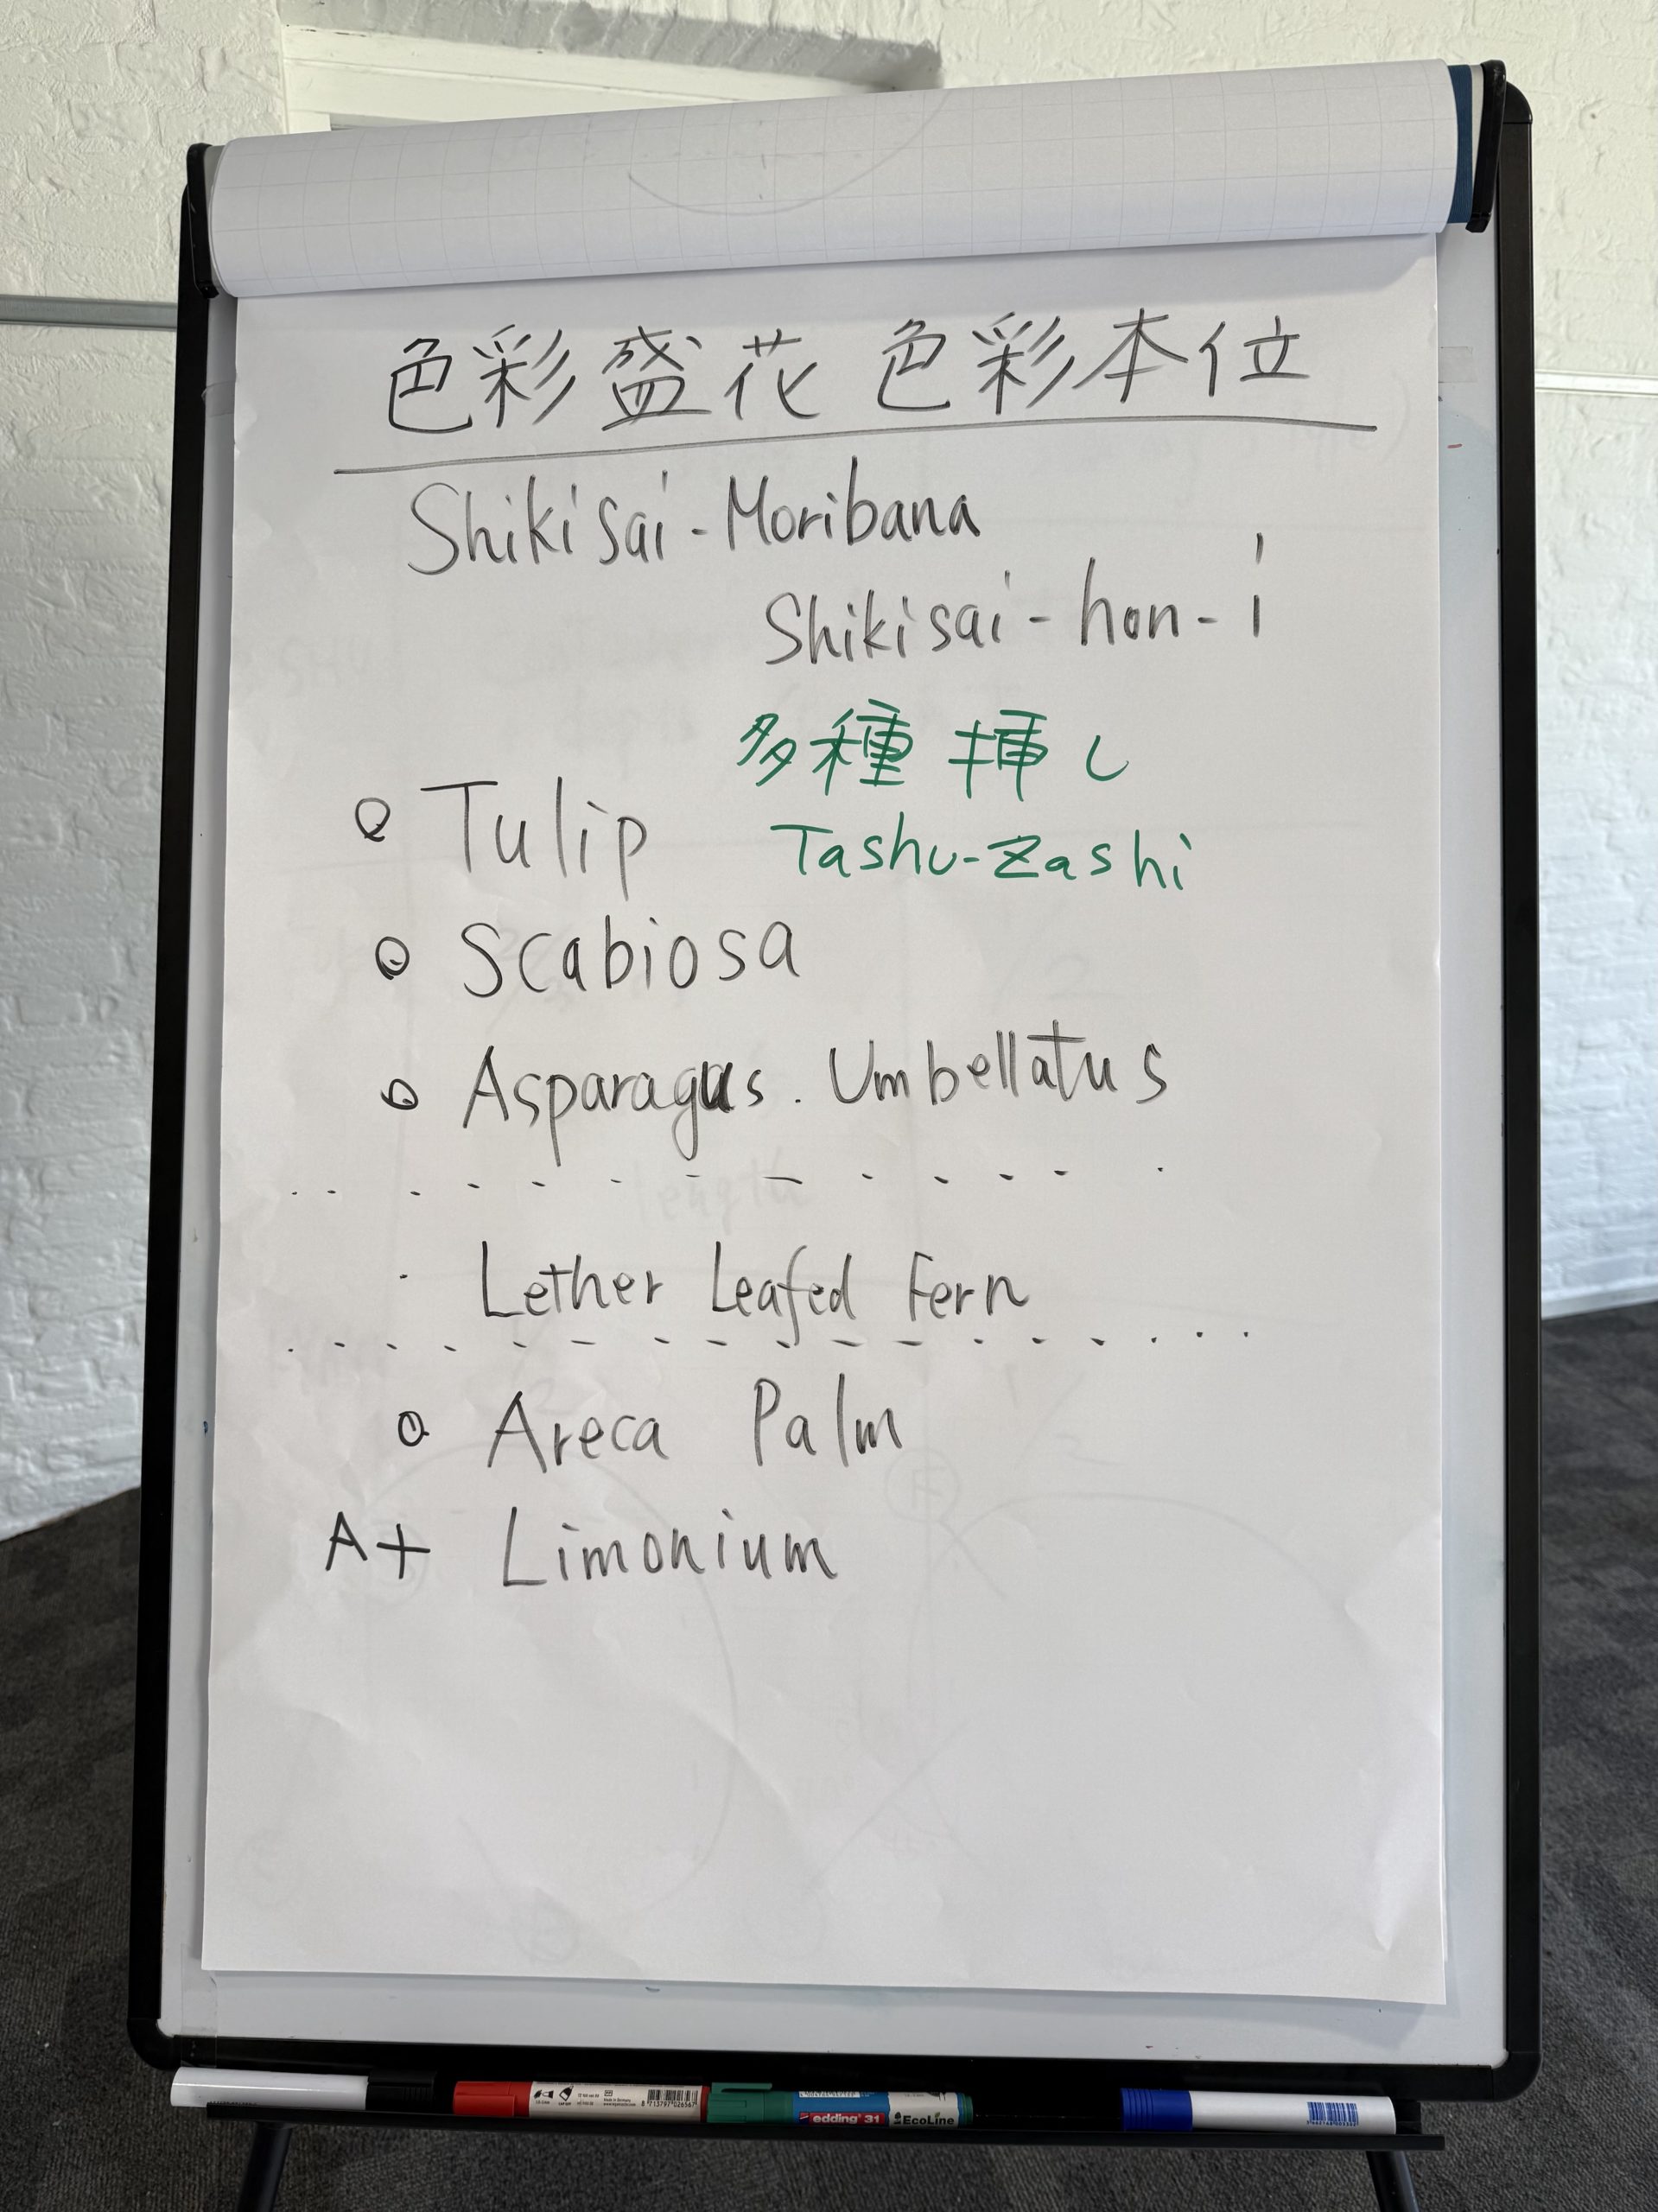 色彩盛花 色彩本位
Shikisai-Moribana
Shikisai-hon-i
多種挿し
Tulip
Tashu-Zashi
Scabiosa
Asparagus. Umbellatus
Lether Leafed Fern
Areca Palm
A+ Limonium
edding 31
EcoLine